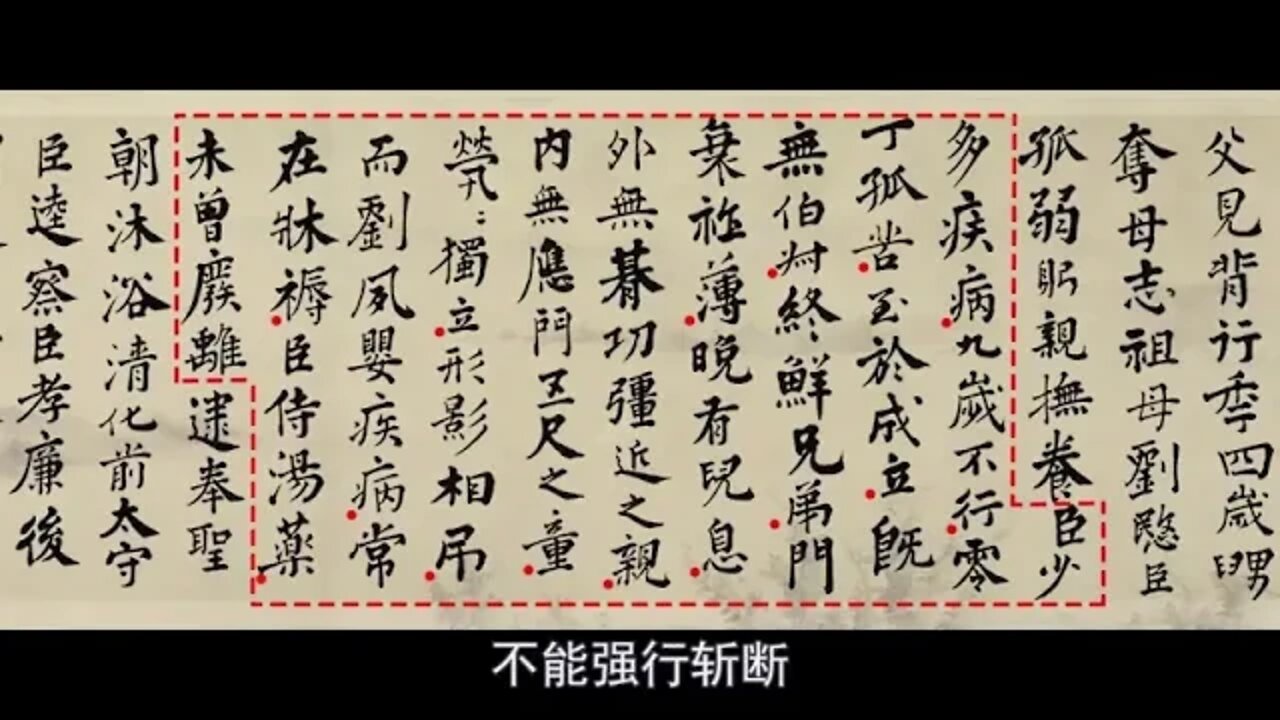 父見背行秊四歲舅
奪母志祖母劉愍臣
孤弱躬親撫養臣少
多疾病九歲不行零
丁孤苦至於成立既
無伯叔終鮮兄弟門
衰祚薄晚有兒息
外無朞功彊近之親
內無應門五尺之童
煢〻獨立形影相吊
而劉夙嬰疾病常
在牀褥臣侍湯藥
未曾廢離逮奉聖
朝沐浴清化前太守
臣逵察臣孝廉後
不能强行斩断